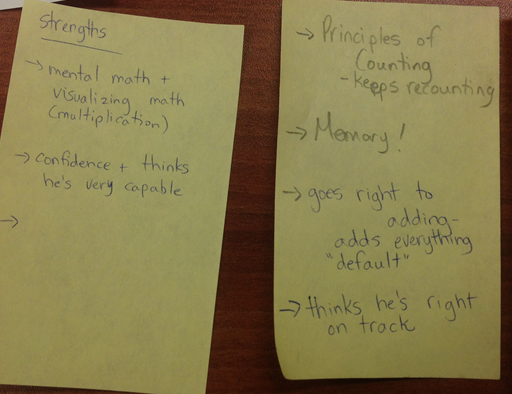 Strengths
→ mental math +
visualizing math
(multiplication)
→ confidence + thinks
he's very capable
→
→ Principles of
Counting
- keeps recounting
→ Memory!
→ goes right to
adding-
adds everything
"default"
→ thinks he's right
on track